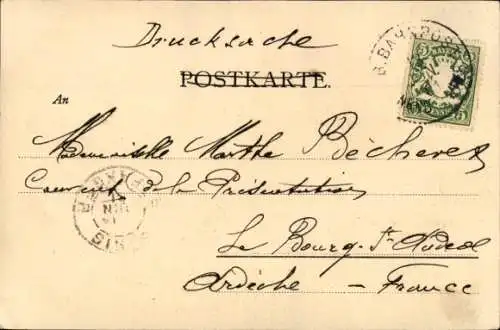 Drucksache
POSTKARTE.
An
Mademoiselle Marthe Bécheret
Couvent de la Présentation
Le Bourg-St-Andéol
Ardèche - France
K. BAYER.
5 5